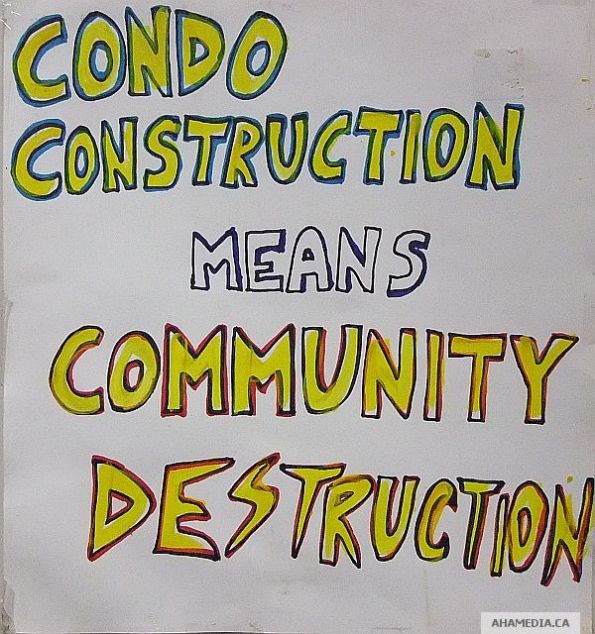 CONDO
CONSTRUCTION
MEANS
COMMUNITY
DESTRUCTION
AHAMEDIA.CA